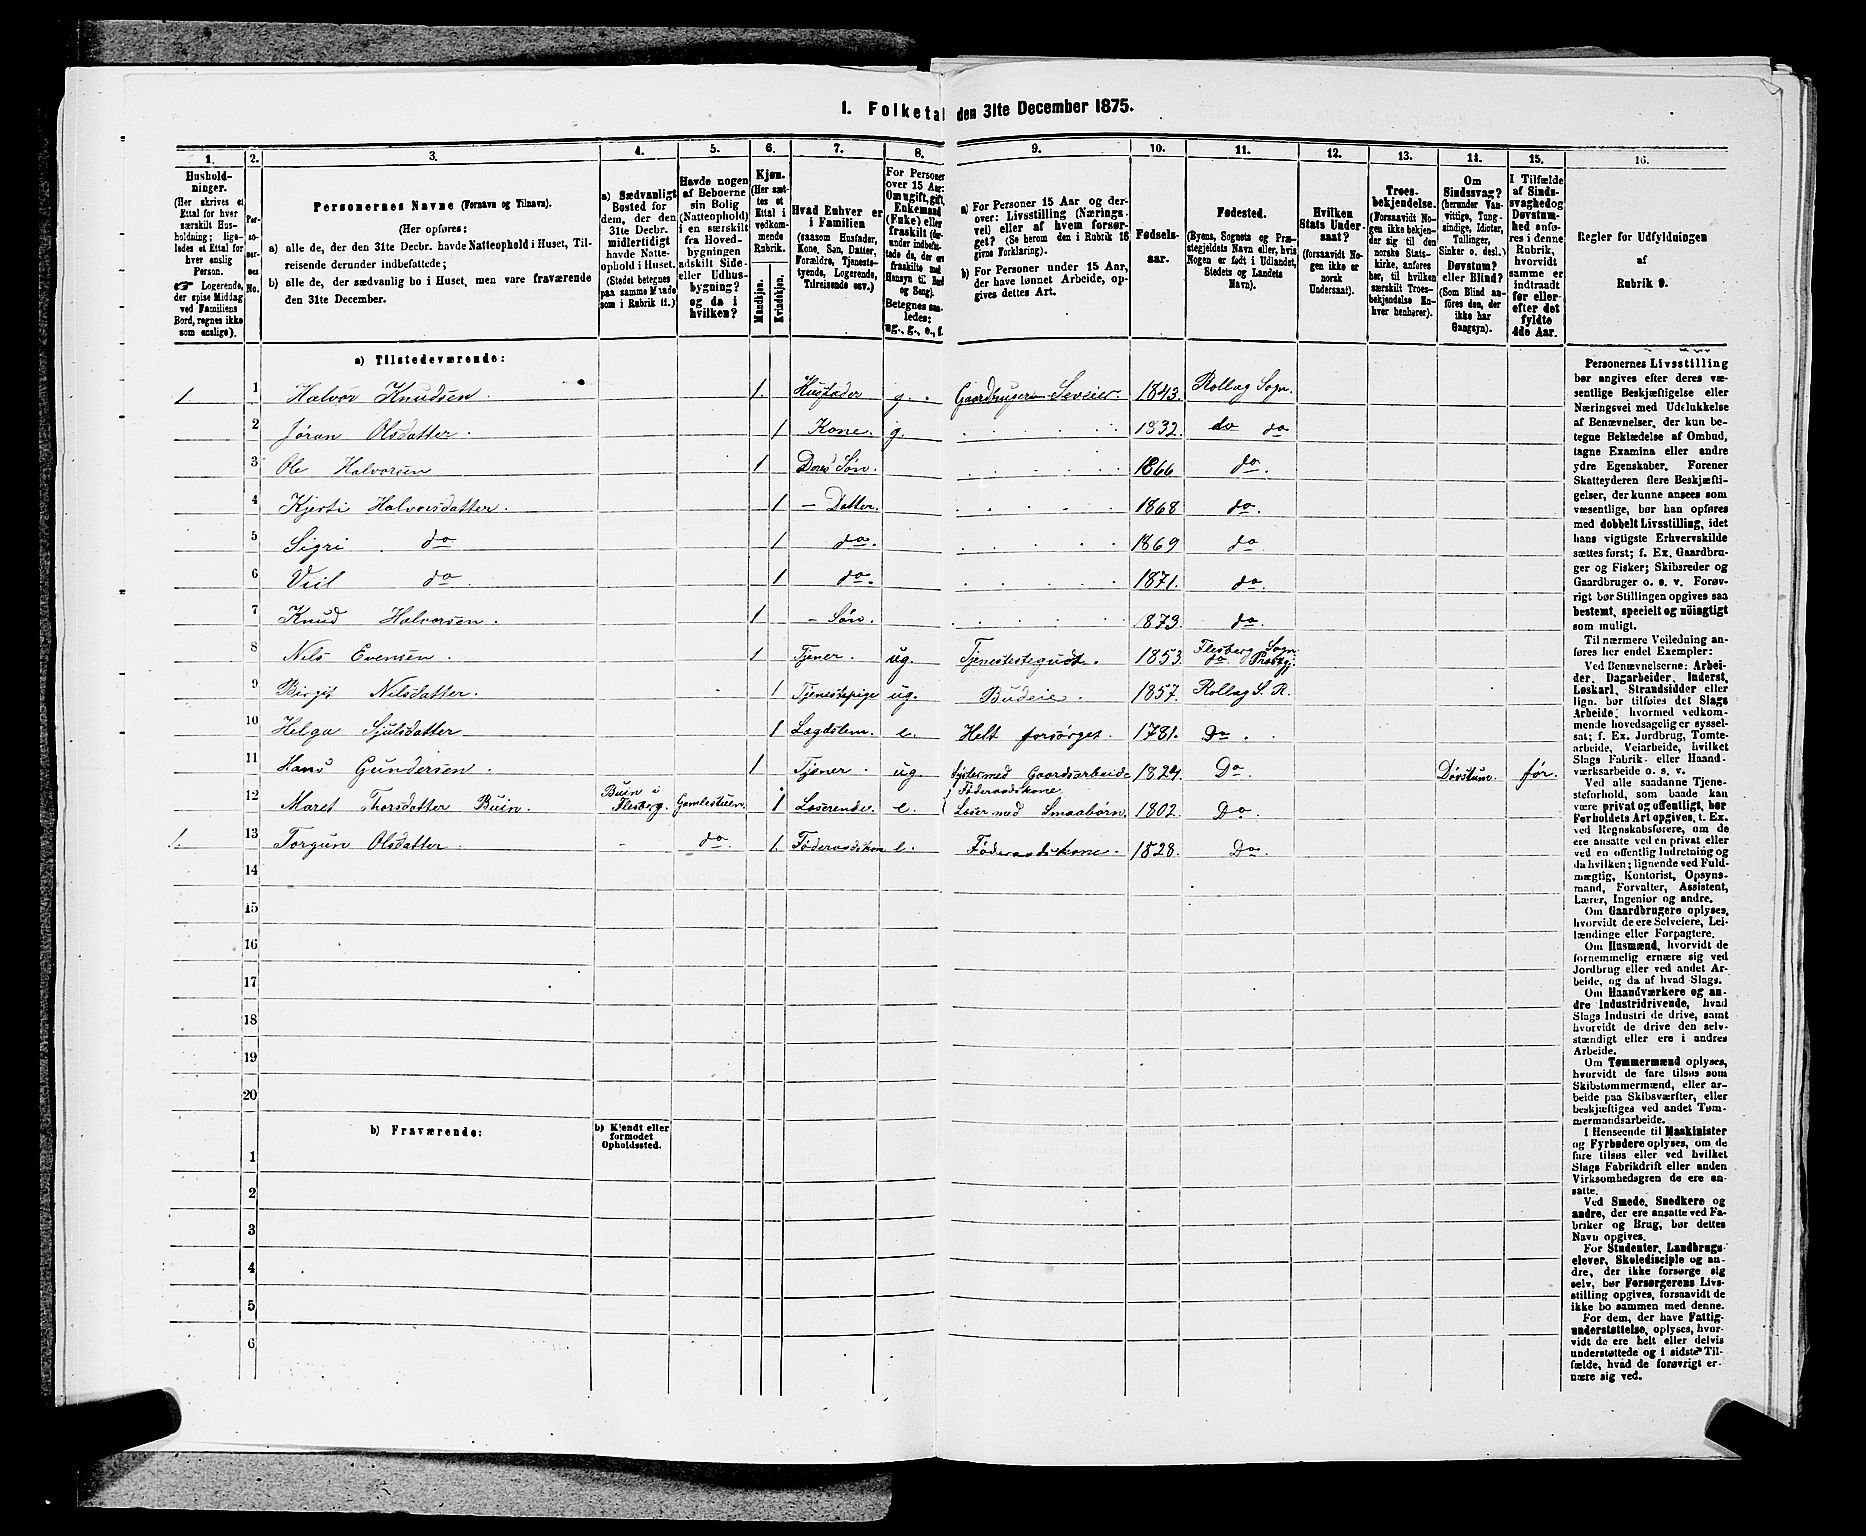 1. Folketal den 31te December 1875.
1. 2. 3. 4. 5. 6. 7. 8. 9. 10. 11. 12. 13. 14. 15. 16.
Hushold-
ninger.
(Her skrives et
Ettal for hver
særskilt Hus-
holdning; lige-
ledes et Ettal for
hver enslig
Person.
☛ Logerende,
der spise Middag
ved Familiens
Bord, regnes ikke
som enslige).
Per-
so-
ner-
nes
No.
Personernes Navne (Fornavn og Tilnavn).
(Her opføres:
a) alle de, der den 31te Decbr. havde Natteophold i Huset, Til-
reisende derunder indbefattede;
b) alle de, der sædvanlig bo i Huset, men vare fraværende
den 31te December.
a) Sædvanligt
Bosted for
dem, der den
31te Decbr.
midlertidigt
havde Natte-
ophold i Huset.
(Stedet betegnes
paa samme Maade
som i Rubrik 11.)
Havde nogen
af Beboerne
sin Bolig
(Natteophold)
i en særskilt
fra Hoved-
bygningen
adskilt Side-
eller Udhus-
bygning?
og da i
hvilken?
Kjøn.
(Her sæt-
tes et
Ettal i
vedkom-
mende
Rubrik.
Mandkjøn.
Kvindekjøn.
Hvad Enhver er
i Familien
(saasom Husfader,
Kone, Søn, Datter,
Forældre, Tjeneste-
tyende, Logerende,
Tilreisende osv.)
For Personer
over 15 Aar:
Om ugift, gift,
Enkemand
(Enke) eller
fraskilt (her-
under indbefat-
tede de, der ere
fraskilte med
Hensyn til Bord
og Seng).
Betegnes saa-
ledes:
ug., g., e., f.
a) For Personer 15 Aar og der-
over: Livsstilling (Nærings-
vei) eller af hvem forsør-
get? (Se herom den i Rubrik 16
givne Forklaring).
b) For Personer under 15 Aar,
der have lønnet Arbeide, op-
gives dettes Art.
Fødsels-
aar.
Fødested.
(Byens, Sognets og Præ-
stegjeldets Navn eller, hvis
Nogen er født i Udlandet,
Stedets og Landets
Navn).
Hvilken
Stats Under-
saat?
(forsaavidt No-
gen ikke er
norsk
Undersaat).
Troes-
bekjendelse.
(Forsaavidt No-
gen ikke bekjen-
der sig til den
norske Stats-
kirke, anføres
her, til hvilken
særskilt Troes-
bekjendelse En-
hver henhører).
Om
Sindssvag?
(herunder Van-
vittige, Tung-
sindige, Idioter,
Tullinger,
Sinker o. desl.)
Døvstum?
eller Blind?
(Som Blind an-
føres den, der
ikke har
Gangsyn).
I Tilfælde
af Sinds-
svaghed og
Døvstum-
hed anfø-
res i denne
Rubrik,
hvorvidt
samme er
indtraadt
før eller
efter det
fyldte
4de Aar.
Regler for Udfyldningen
af
Rubrik 9.
a) Tilstedeværende:
1 1 Halvor Knudsen. 1. Husfader g. Gaardbruger Selveier. 1843. Rollag Sogn.
2 Jøran Olsdatter. 1 Kone. g. 1832. do do
3 Ole Halvorsen 1 Deres Søn. 1866 do.
4 Kjersti Halvorsdatter. 1 – Datter. 1868 do.
5 Sigri do 1 do. 1869 do
6 do 1 do. 1871. do
7 Knud Halvorsen. 1 – Søn. 1873. do.
8 Nils Evensen. 1 Tjener. ug. 1853. Flesberg Sogn do Præstgj.
9 Birgit Nilsdatter. 1 Tjenestepige ug. Budeie. 1857. Rollag S. R.
10 Helga 1 Lægdslem. e. Helt forsørget. 1781. Do.
11 Hans Gundersen. 1 Tjener. ug. med Gaardsarbeide 1824. Do Døvstum. før.
12 Maret Thorsdatter Buin. Buin i Flesberg. Gamlestuen. 1 Loserende. e. Føderaadskone med Smaabørn. 1802. Do
1. 13 Torgun Olsdatter. do. 1. Føderaadskone e. Føderaadskone. 1828. Do.
14
15
16
17
18
19
20
b) Fraværende:
b) Kjendt eller
formodet
Opholdssted.
1
2
3
4
5
6
Personernes Livsstilling
bør angives efter deres væ-
sentlige Beskjæftigelse eller
Næringsvei med Udelukkelse
af Benævnelser, der kun be-
tegne Beklædelse af Ombud,
tagne Examina eller andre
ydre Egenskaber. Forener
Skatteyderen flere Beskjæfti-
gelser, der kunne ansees som
væsentlige, bør han opføres
med dobbelt Livsstilling, idet
hans vigtigste Erhvervskilde
sættes først; f. Ex. Gaardbru-
ger og Fisker; Skibsreder og
Gaardbruger o. s. v. Forøv-
rigt bør Stillingen opgives saa
bestemt, specielt og nöiagtigt
som muligt.
Til nærmere Veiledning an-
føres her endel Exempler:
Ved Benævnelserne: Arbei-
der, Dagarbeider, Inderst,
Løskarl, Strandsidder eller
lign. bør tilføies det Slags
Arbeide, hvormed vedkom-
mende hovedsagelig er syssel-
sat; f. Ex. Jordbrug, Tomte-
arbeide, Veiarbeide, hvilket
Slags Fabrik- eller Haand-
værksarbeide o. s. v.
Ved alle saadanne Tjene-
steforhold, som baade kan
være privat og offentligt, bør
Forholdets Art opgives, t. Ex.
ved Regnskabsførere, om de
ere ansatte ved en privat eller
ved en offentlig Indretning og
da hvilken; lignende ved Fuld-
mægtig, Kontorist, Opsyns-
mand, Forvalter, Assistent,
Lærer, Ingeniør og andre.
Om Gaardbrugere oplyses,
hvorvidt de ere Selveiere, Lei-
lændinge eller Forpagtere.
Om Husmænd, hvorvidt de
fornemmelig ernære sig ved
Jordbrug eller ved andet Ar-
beide, og da af hvad Slags.
Om Haandværkere og an-
dre Industridrivende, hvad
Slags Industri de drive, samt
hvorvidt de drive den selv-
stændigt eller ere i andres
Arbeide.
Om Tømmermænd oplyses,
hvorvidt de fare tilsøs som
Skibstømmermænd, eller ar-
beide paa Skibsværfter, eller
beskjæftiges ved andet Tøm-
mermandsarbeide.
I Henseende til Maskinister
og Fyrbødere oplyses, om de
fare tilsøs eller ved hvilket
Slags Fabrikdrift eller anden
Virksomhedsgren de ere an-
satte.
Ved Smede, Snedkere og
andre, der ere ansatte ved Fa-
briker og Brug, bør dettes
Navn opgives.
For Studenter, Landbrugs-
elever, Skoledisciple og an-
dre, der ikke forsørge sig
selv, bør Forsørgerens Livs-
stilling opgives, forsaavidt de
ikke bo sammen med denne.
For dem, der have Fattig-
understøttelse, oplyses, hvor-
vidt de ere helt eller delvis
understøttede og i sidste Til-
fælde, hvad de forøvrigt er-
nære sig ved.